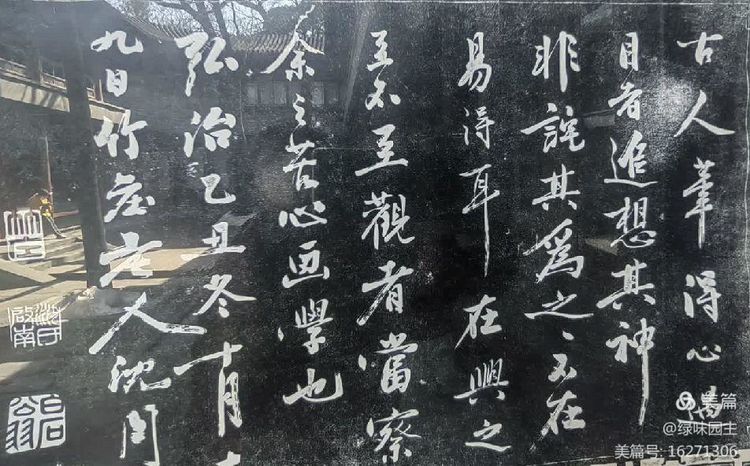 古人筆得心
目者追想其神
非詫其為之、不在
易得耳在興之
至不至觀者當察
余之苦心画學也
弘治乙丑冬十月
九日竹庄老人沈周
啟南
石翁
美篇
@绿味园主
美篇号: 16271306